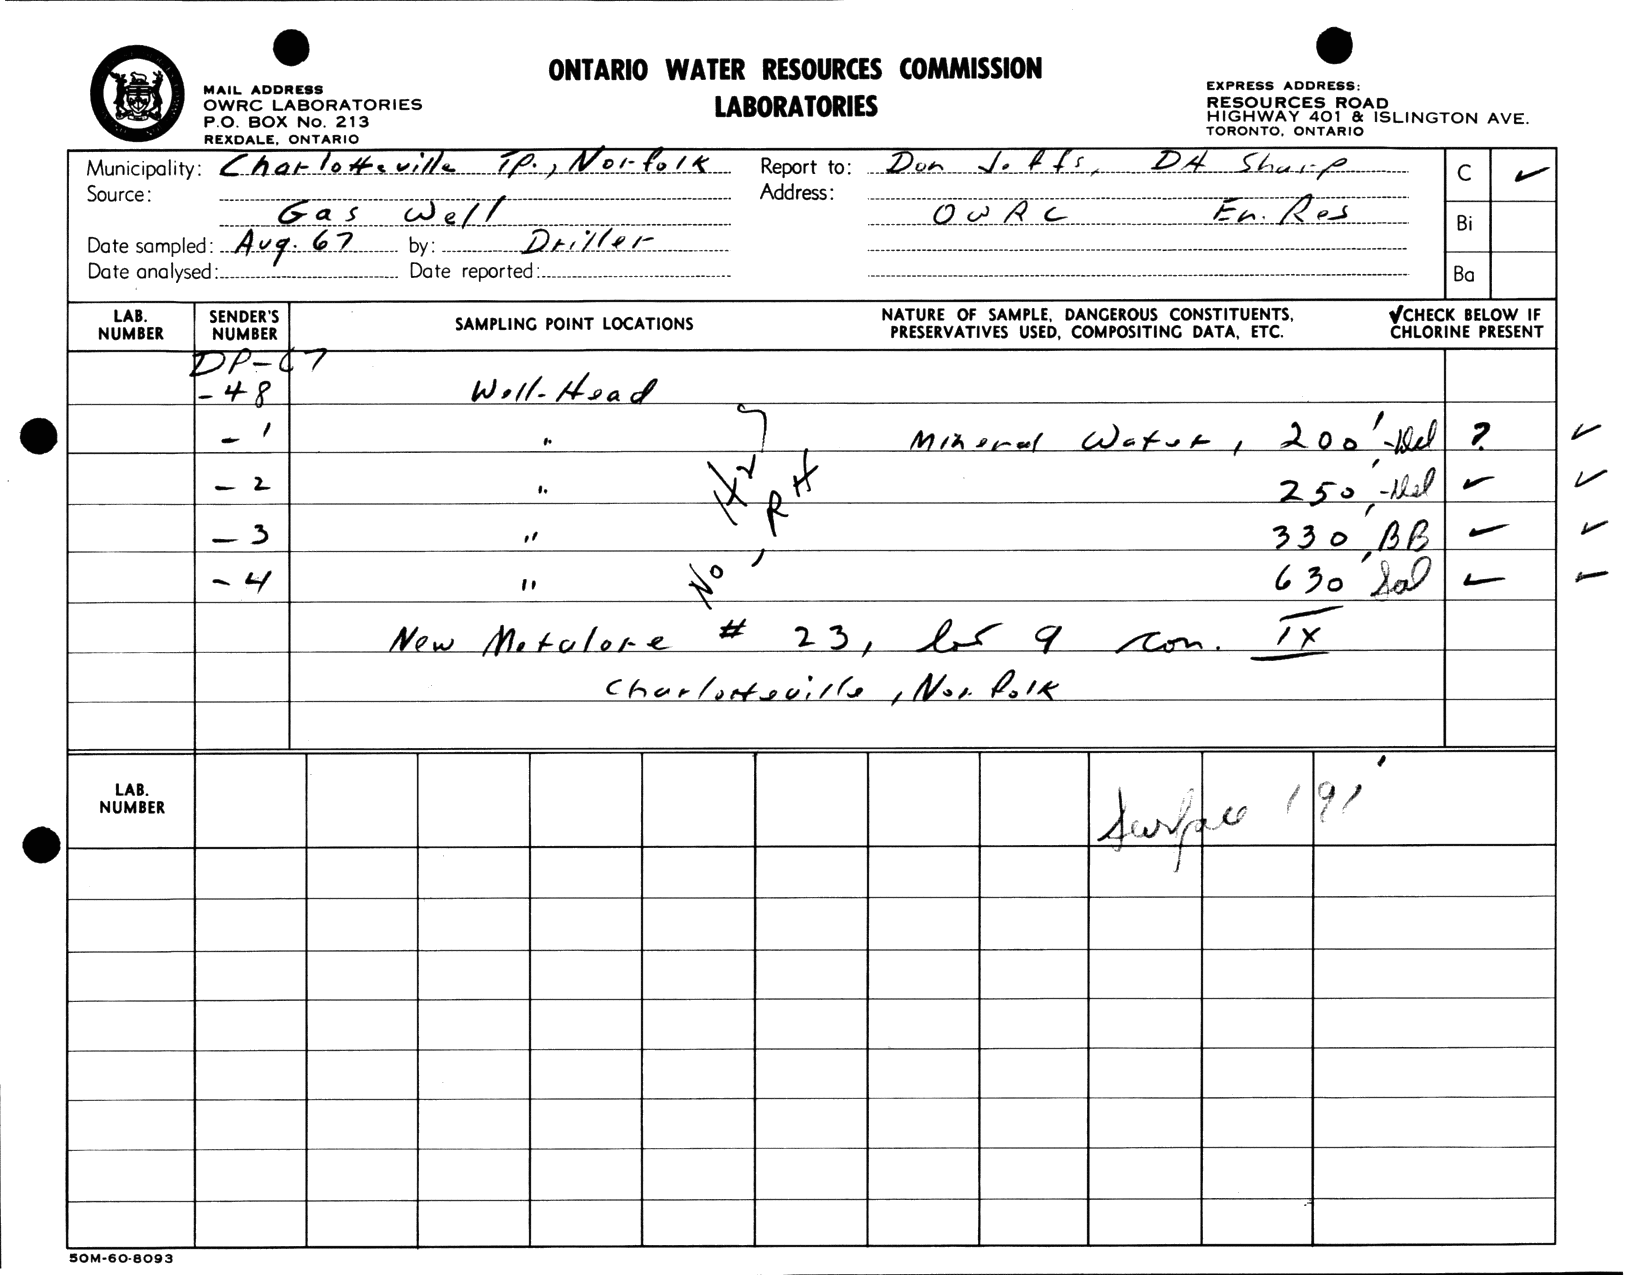 ONTARIO WATER RESOURCES COMMISSION
LABORATORIES
MAIL ADDRESS
OWRC LABORATORIES
P.O. BOX No. 213
REXDALE, ONTARIO
EXPRESS ADDRESS:
RESOURCES ROAD
HIGHWAY 401 & ISLINGTON AVE.
TORONTO, ONTARIO
Municipality: Charlotteville Tp., Norfolk
Source:
Gas Well
Date sampled: Aug. 67 by: Driller
Date analysed: Date reported:
Report to: Don Jeffs, DA Sharp
Address:
OWRC En. Res
C ✓
Bi
Ba
LAB. NUMBER SENDER'S NUMBER SAMPLING POINT LOCATIONS NATURE OF SAMPLE, DANGEROUS CONSTITUENTS, PRESERVATIVES USED, COMPOSITING DATA, ETC. ✓CHECK BELOW IF CHLORINE PRESENT
DP-67
-48 Well-Head
-1 " Mineral Water, 200' -Del ? ✓
-2 " 250' -Del ✓ ✓
-3 " 330', BB ✓ ✓
-4 " 630' Sal ✓ ✓
No, RH
New Metalore # 23, lot 9 con. IX
Charlotteville, Norfolk
LAB. NUMBER
Surface 191'
50M-60-8093